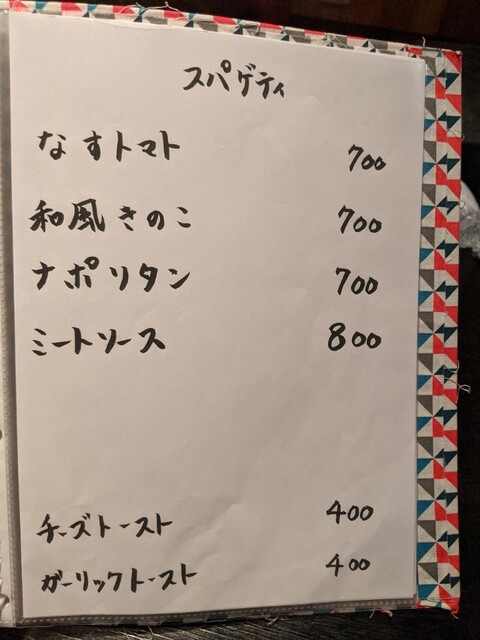 スパゲティ
なすトマト 700
和風きのこ 700
ナポリタン 700
ミートソース 800
チーズトースト 400
ガーリックトースト 400